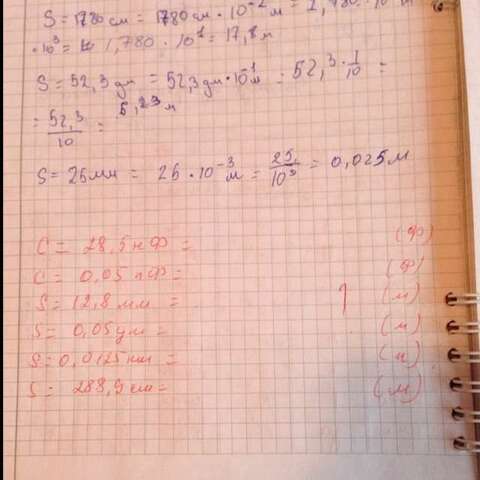 S = 1780 см = 1780 см · 10⁻² м = 1,780 · 10
· 10³ = 1,780 · 10¹ = 17,8 м
S = 52,3 дм = 52,3 дм · 10⁻¹ м = 52,3 · 1/10 =
= 52,3/10 = 5,23 м
S = 25 мм = 25 · 10⁻³ м = 25/10³ = 0,025 м
C = 28,5 нФ = (Ф)
C = 0,05 пФ = (Ф)
S = 12,8 мм = (м)
S = 0,05 дм = (м)
S = 0,0125 км = (м)
S = 288,9 см = (м)